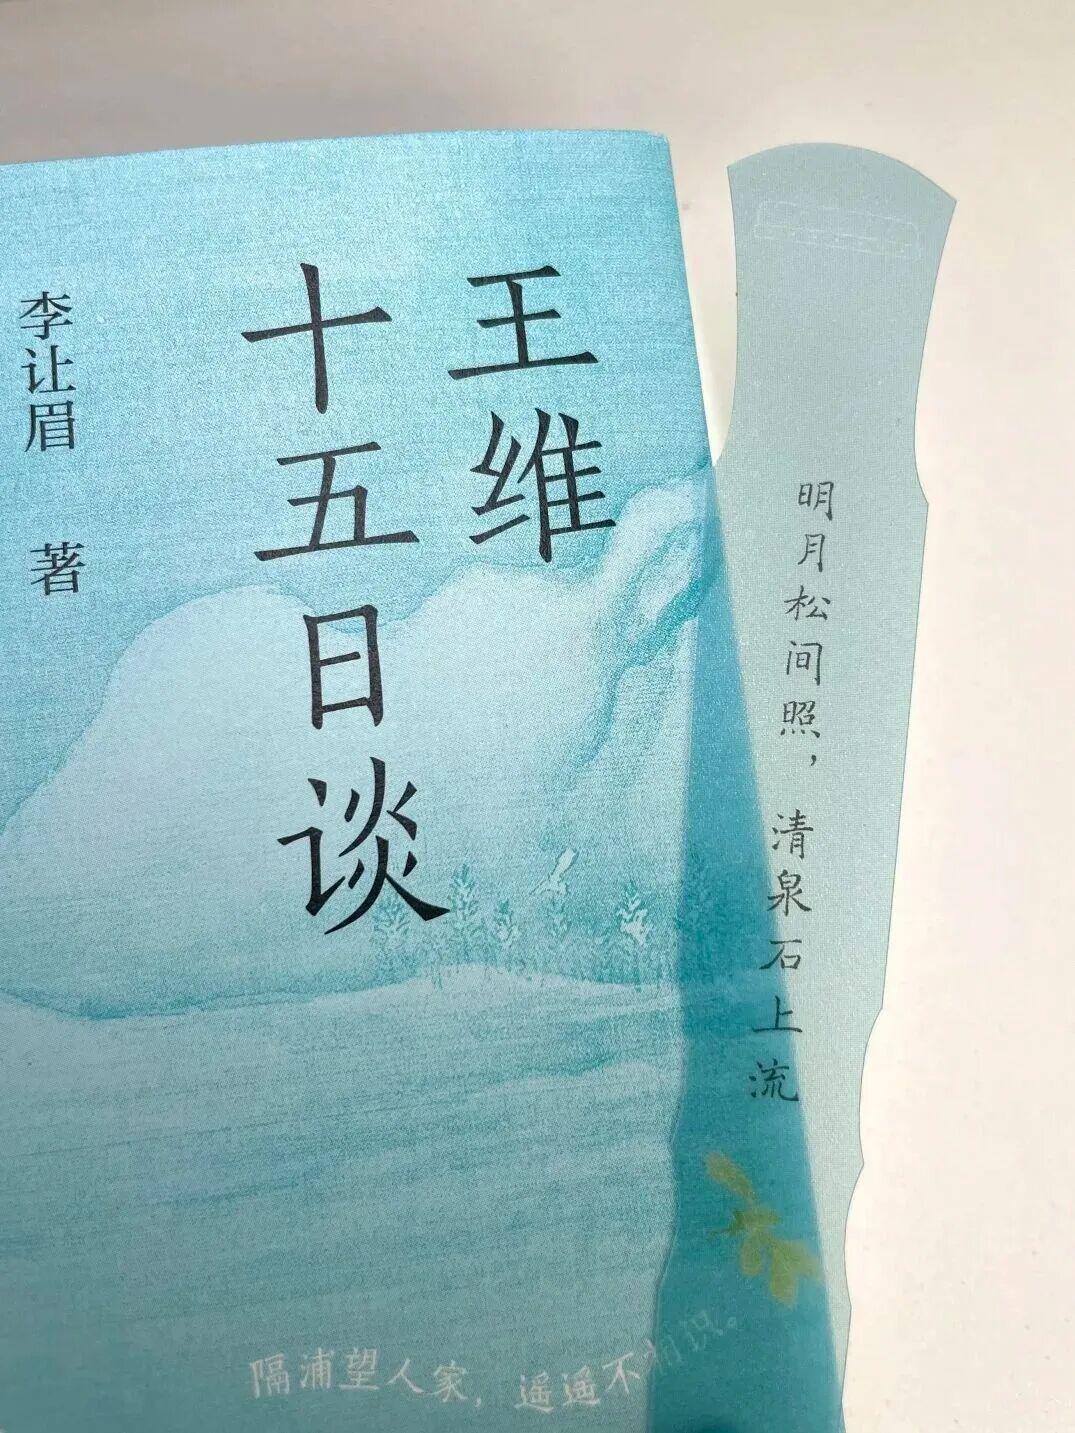 王维
十五日谈
李让眉 著
明月松间照，清泉石上流
隔浦望人家，遥遥不相识。